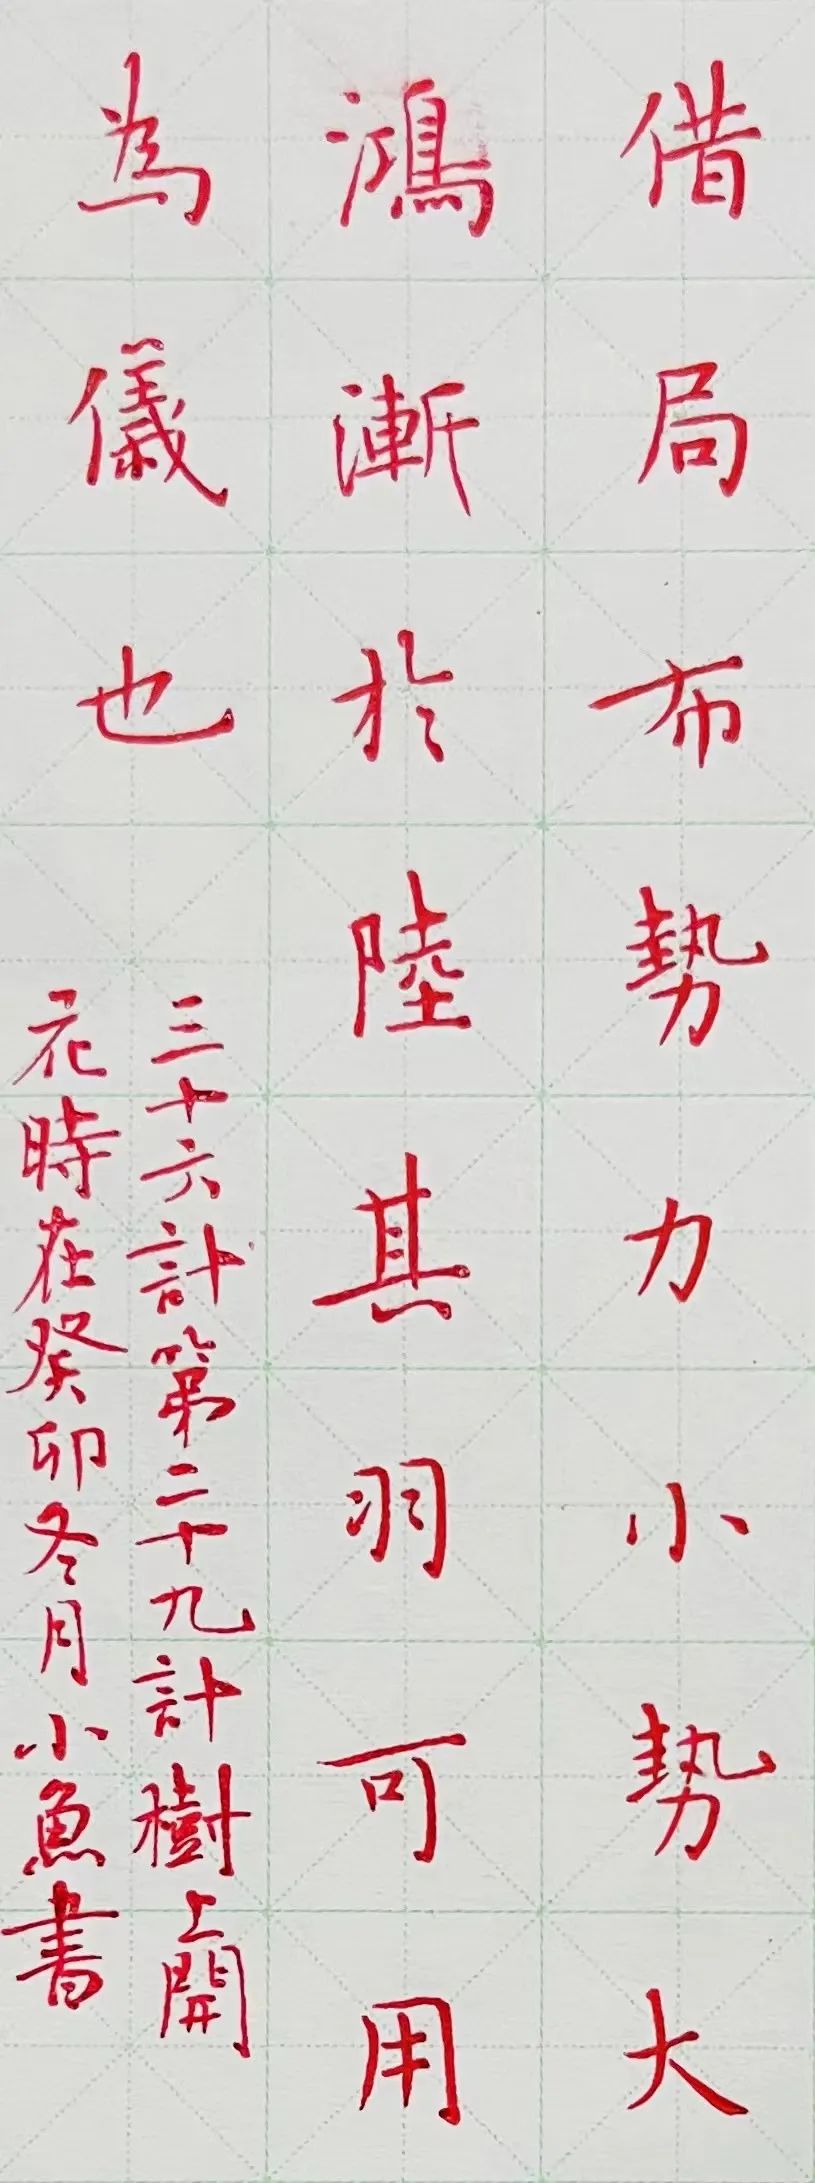 借局布勢力小勢大
鴻漸於陸其羽可用
為儀也
三十六計第二十九計樹上開
花時在癸卯冬月小魚書